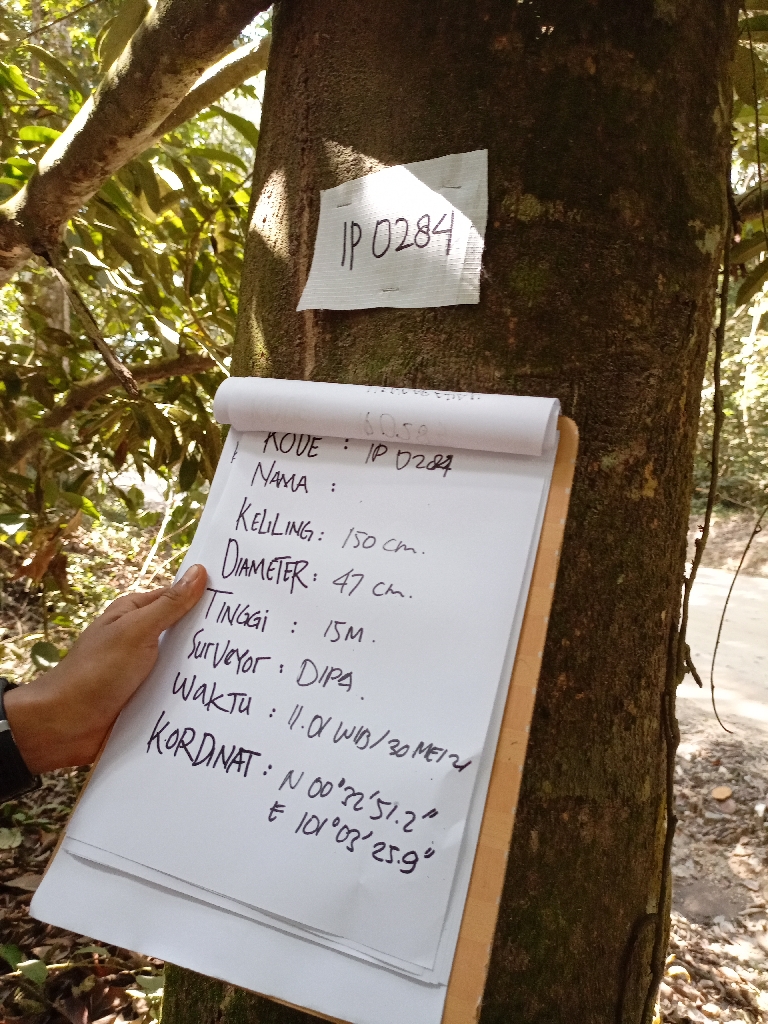 IP 0284
KODE : IP 0284
NAMA :
KELILING : 150 cm.
DIAMETER : 47 cm.
TINGGI : 15M.
SURVEYOR : DIPA.
WAKTU : 11.01 WIB/30 MEI 21
KORDINAT : N 00°32'51.2"
E 101°03'25.9"